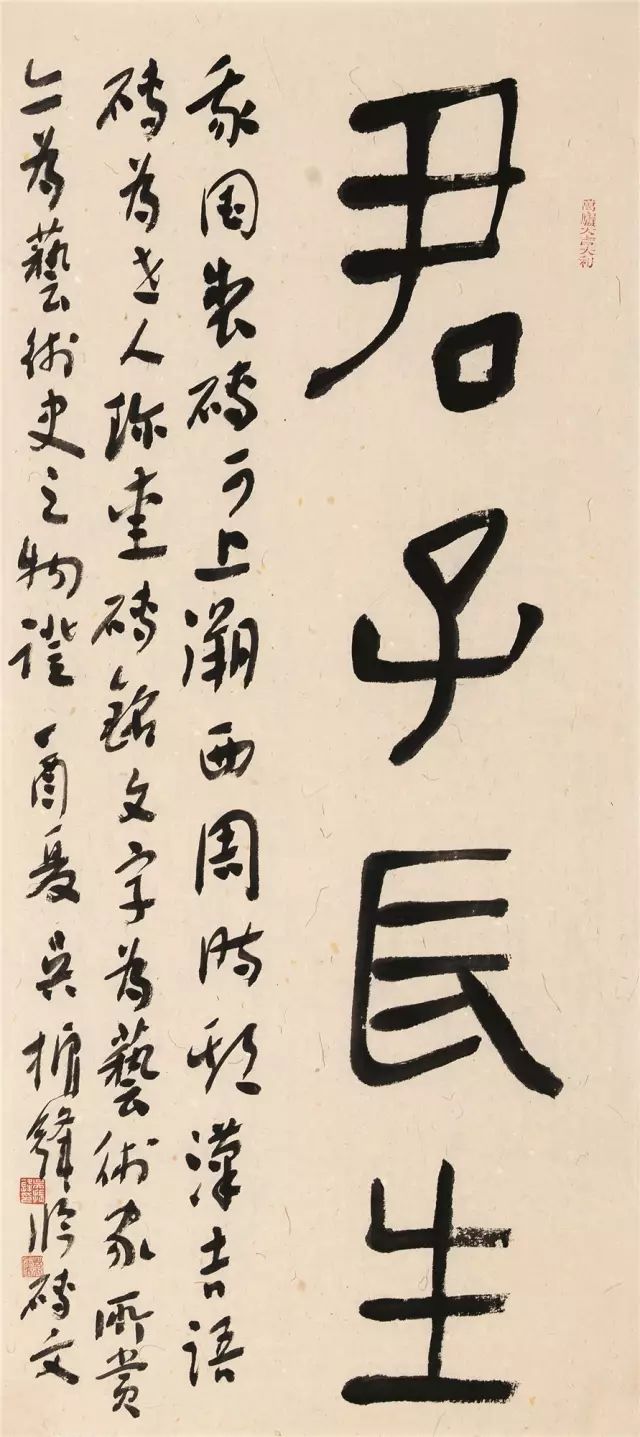 君子長生
我国製磚可上溯西周時期漢吉語
磚為世人珍重磚銘文字為藝術家所賞
亦為藝術史之物證丁酉夏吳振鋒臨磚文